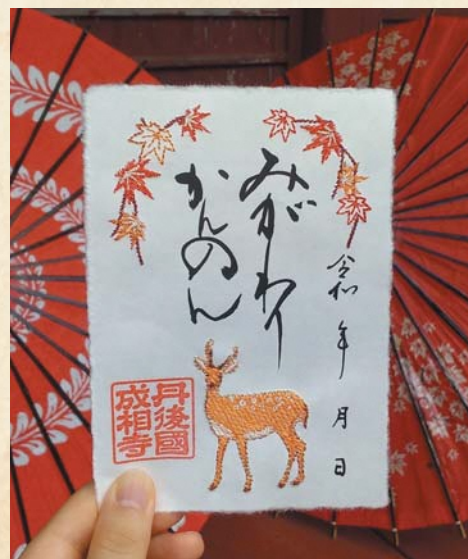 令和 年 月 日
みがわり
かんのん
丹後國
成相寺